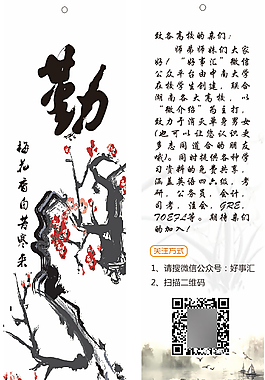 勤
梅花香自苦寒来
致各高校的亲们：
师弟师妹们大家
好！“好事汇”微信
公众平台由中南大学
在校学生创建，联合
湖南各大高校，以
“微介绍”为主打，
致力于消灭单身男女
(也可以让您认识更
多志同道合的朋友
哦)。同时提供各种学
习资料的免费共享，
涵盖英语四六级，考
研，公务员，会计，
司考，注会，GRE，
TOEFL等。期待亲们
的加入！
关注方式
1、请搜微信公众号：好事汇
2、扫描二维码